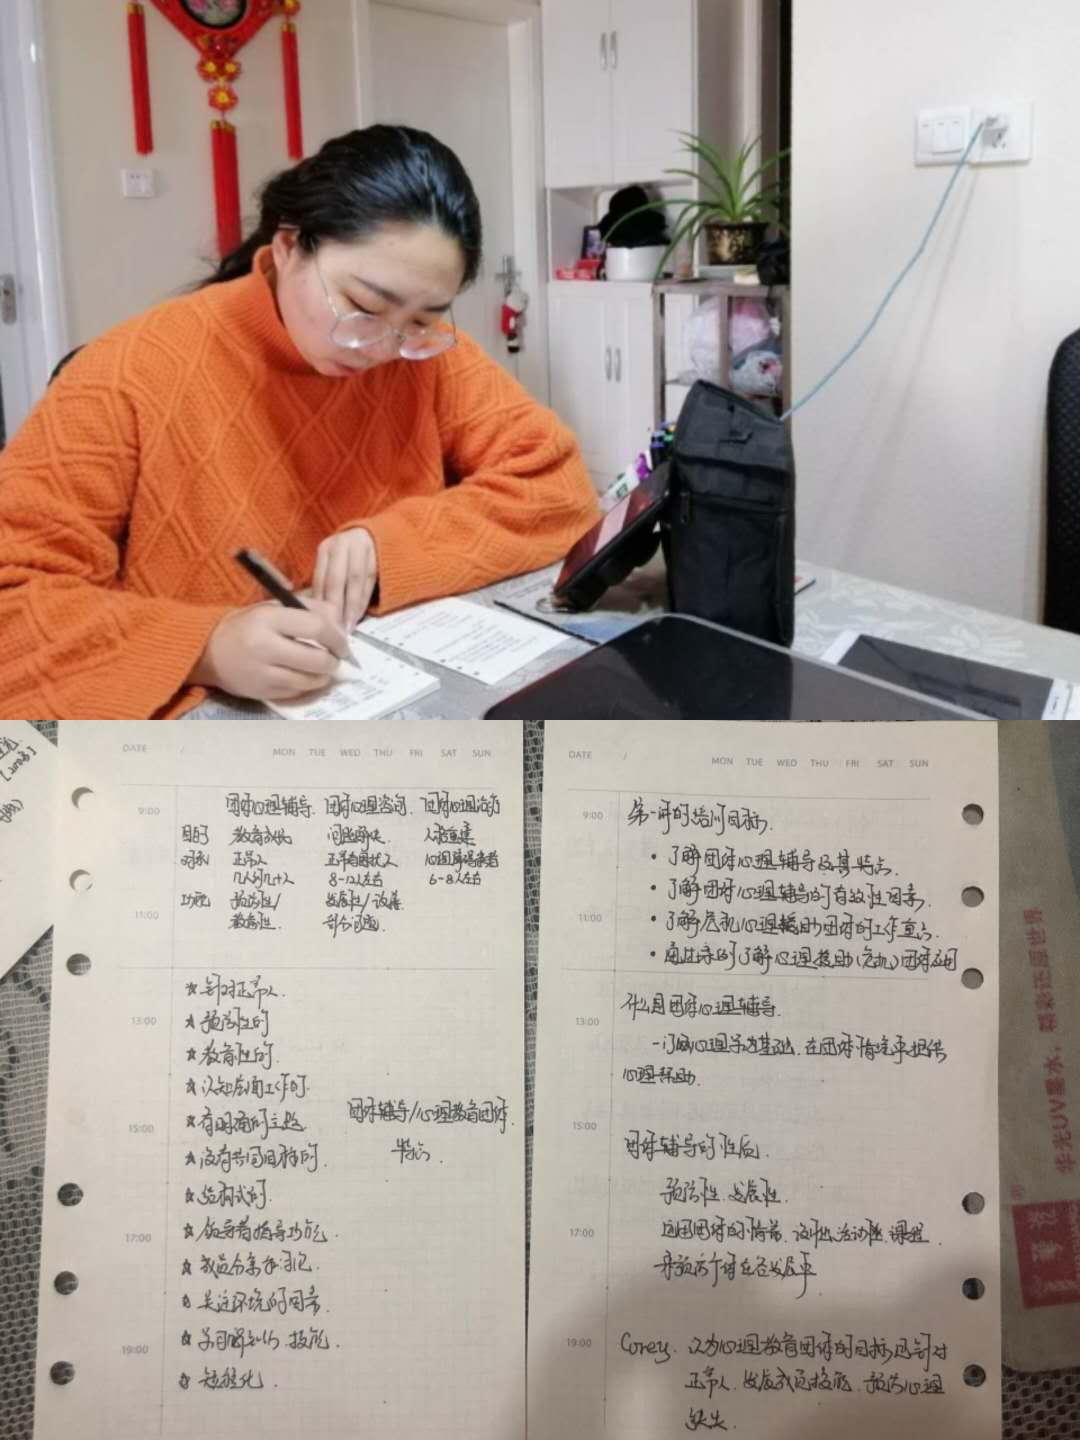 DATE / MON TUE WED THU FRI SAT SUN
9:00
团体心理辅导 团体心理咨询 团体心理治疗
目的 教育成长 问题解决 人格重建
对象 正常人 正常有困扰人 心理障碍患者
几人到几十人 8-12人左右 6-8人左右
功能 预防性/ 发展性/改善
教育性 部分问题
11:00
☆针对正常人.
13:00
☆预防性的
☆教育性的
☆认知层面工作的
☆有明确的主题
团体辅导/心理教育团体
特点.
15:00
☆没有共同目标的
☆结构式的
17:00
☆领导者指导功能.
☆成员
☆关注环境的因素.
☆学习技能.
19:00
☆短程化.
DATE / MON TUE WED THU FRI SAT SUN
9:00
第一讲的培训目标.
• 了解团体心理辅导及其特点.
• 了解团体心理辅导的有效性因素.
11:00
• 了解危机心理援助团体的工作重点.
• 的了解心理援助(危机)团体应用
什么是团体心理辅导.
13:00
一门以心理学为基础.在团体情境下提供
心理帮助.
15:00
团体辅导的性质.
预防性.发展性.
17:00
运用团体的情景.设计出活动性.课程
来预防个体在各发展中
19:00
Corey. 认为心理教育团体的目标是针对
正常人.发展成员技能.预防心理
缺失.
华光UV墨水,精彩还原世界